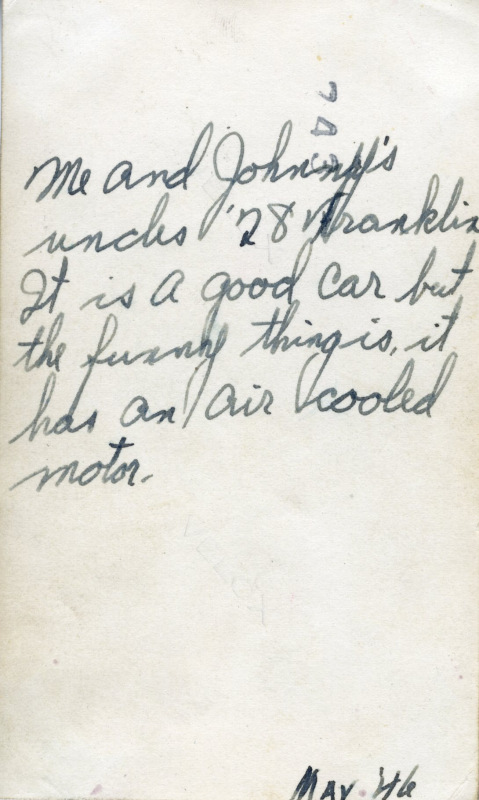 Me and Johnny's
uncles '28 Franklin
It is a good car but
the funny thing is, it
has an air cooled
motor.
May. '46